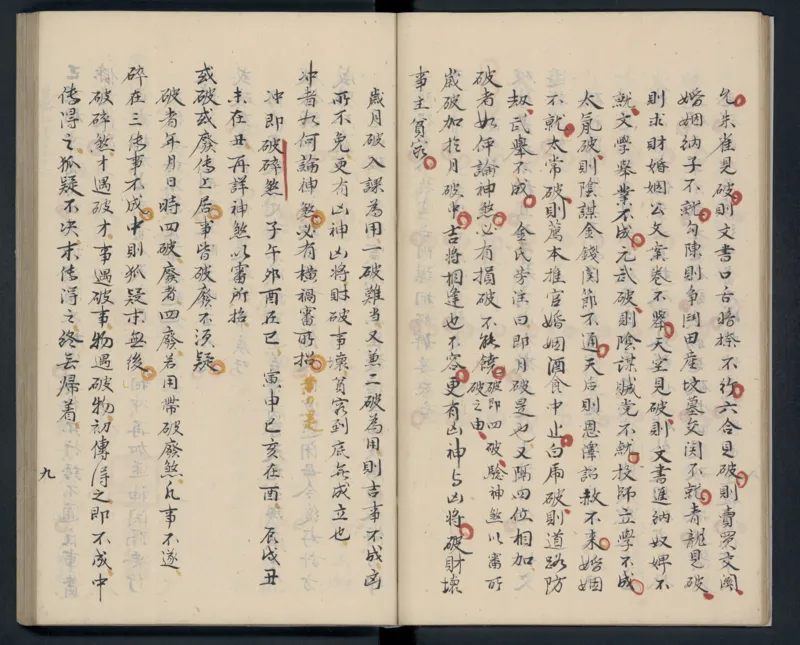 允朱雀見破則文書口舌暗撩不行六合見破則賣買交関
婚姻納子不就勾陳則爭鬥田座墳墓交関不就青龍見破
則求財婚姻公文案卷不舉天空見破則文書進納奴婢不
就文學舉業不成元武破則陰謀賊党不就投師立學不成
太氣破則陰謀金錢関節不通天后則恩澤詔赦不来婚姻
不就太常破則薦本推官婚姻酒食中止白虎破則道路防
劾武舉不成 金氏步注曰即月破是也又隔四位相加
破者如何論神煞必有損破不能饒破即四破驗神煞以審所
破之由
歲破加於月破中吉將相逢也不容更有凶神与凶將破財壊
事主貧窮
歲月破入課為用一破難当又兼二破為用則吉事不成凶
所不免更有凶神凶將財破事壊貧窮到底無成立也
冲者如何論神煞必有横禍審所招
冲即破碎煞 子午卯酉在巳 寅申巳亥在酉 辰戌丑
未在丑再詳神煞以審所招
或破或廢傳上居事皆破廢不須疑
破者年月日時四破廢者四廢若用帶破廢煞凡事不遂
碎在三傳事不成中則狐疑末無後
破破碎煞才遇破才事遇破事物遇破物初傳得之即不成中
傳得之狐疑不决末傳得之終無帰着
九